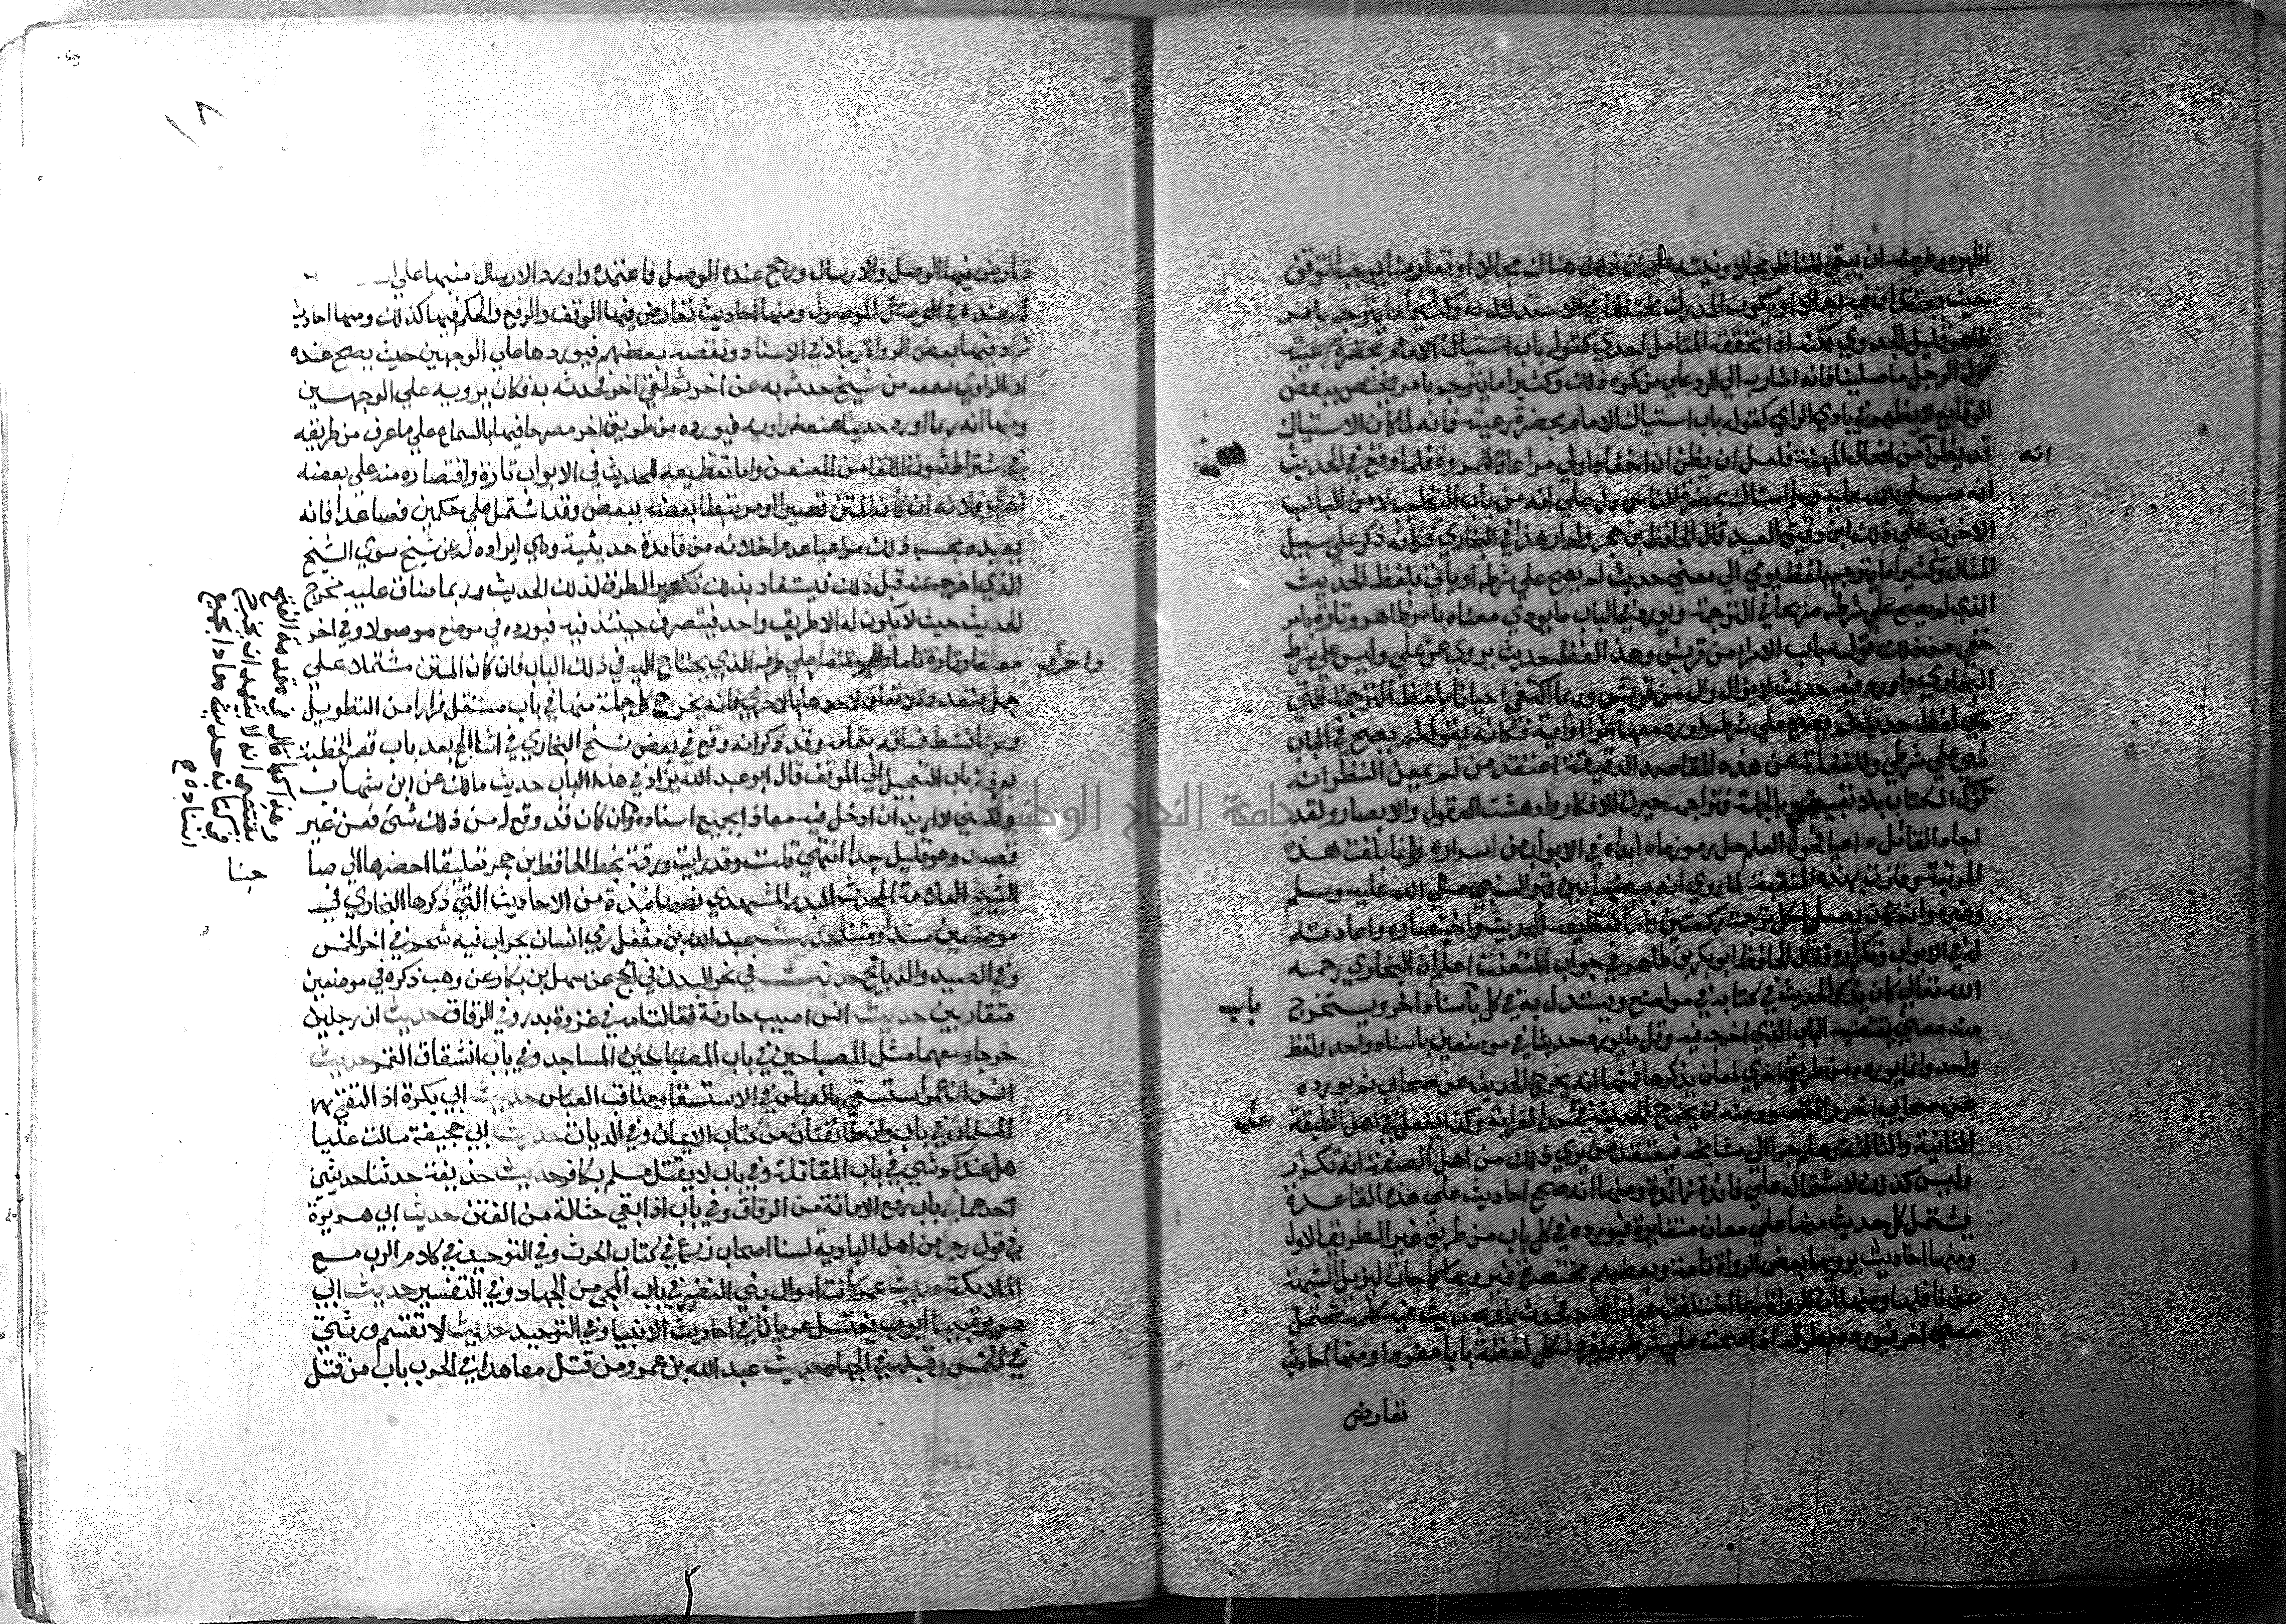 اظهره وغرضه ان يبقي للناظر مجالا وينبه علي ان هناك مجالا او تعارضا يوجب التوقف
حيث يعتقد ان فيه اجمالا او يكون المدرك مختلفا في الاستدلال به وكثيرا ما يترجم بامر
ظاهره قليل الجدوي لكنه اذا تحققه المتامل اجدي كقوله باب
قول الرجل ما صلينا فانه اشار به الي الرد علي من كره ذلك وكثيرا ما يترجم بامر يختص ببعض
الوقايع لا يظهر في بادي الراي كقوله باب استياك الامام بحضرة رعيته فانه لما كان الاستياك
قد يظن انه من افعال المهنة فلعل ان يظن ان اخفاه اولي مراعاة للمروة فلما وقع في الحديث
انه صلي الله عليه وسلم استاك بحضرة الناس دل علي انه من باب التطيب لا من الباب
الاخر نبه علي ذلك ابن دقيق العيد قال الحافظ بن حجر ولم ار هذا في البخاري فكانه ذكر علي سبيل
المثال وكثيرا ما يترجم بلفظ يومي الي معني حديث لم يصح علي شرطه او ياتي بلفظ الحديث
الذي لم يصح علي شرطه صريحا في الترجمة ويورد في الباب ما يودي معناه بامر ظاهر وتارة بامر
خفي من ذلك قوله باب الامرا من قريش وهذا لفظ حديث يروي عن علي وليس علي شرط
البخاري واورد فيه حديث لا يزال وال من قريش وربما اكتفي احيانا بلفظ الترجمة التي
هي لفظ حديث لم يصح علي شرطه واورد معها اثرا او اية فكانه يقول لم يصح في الباب
شي علي شرطي وللغفلة عن هذه المقاصد الدقيقة اعتقد من لم يمعن النظر انه
ترك الكتاب بلا تبييض وبالجملة فتراجمه حيرت الافكار وادهشت العقول والابصار ولقد
اجاد القائل اعيا فحول العلم حل رموز ما ابداه في الابواب من اسرار وانما بلغت هذه
المرتبة وفازت بهذه المنقبة لما روي انه بيضها بين قبر النبي صلي الله عليه وسلم
ومنبره وانه كان يصلي لكل ترجمة ركعتين واما تقطيعه للحديث واختصاره واعادته
له في الابواب وتكراره فقال الحافظ ابو بكر بن طاهر في جواب المتعنت اعلم ان البخاري رحمه
الله تعالي كان يذكر الحديث في كتابه في مواضع ويستدل به في كل باب باسناد اخر ويستخرج
منه معني يقتضيه الباب الذي اخرجه فيه وقل ما يورد حديثا في موضعين باسناد واحد ولفظ
واحد وانما يورده من طريق اخري لمعان يذكرها فمنها انه يخرج الحديث عن صحابي ثم يورده
عن صحابي اخر والمقصود منه ان يخرج الحديث عن حد الغرابة وكذا يفعل في اهل الطبقة
الثانية والثالثة وهلم جرا الي مشايخه فيعتقد من يري ذلك من اهل الصنعة انه تكرار
وليس كذلك لاشتماله علي فائدة زائدة ومنها انه صحح احاديث علي هذه القاعدة
يشتمل كل حديث منها علي معان متغايرة فيورده في كل باب من طريق غير الطريق الاول
ومنها احاديث يرويها بعض الرواة تامة وبعضهم مختصرة فيرويها كما جات ليزيل الشبهة
عن ناقليها ومنها ان الرواة ربما اختلفت عباراتهم فحدث راو بحديث فيه كلمة تحتمل
معني اخر فيورده بطرقه اذا صحت علي شرطه ويفرد لكل لفظة بابا مفردا ومنها احاديث
تعارض
انه
باب
عن
تعارض فيها الوصل والارسال ورجح عنده الوصل فاعتمده واورد الارسال منبها علي
عنده في الوصل الموصول ومنها احاديث تعارض فيها الوقف والرفع والحكم فيها كذلك ومنها احاديث
زاد فيها بعض الرواة رجلا في الاسناد ونقصه بعضهم فيوردها علي الوجهين حيث يصح عنده
ان الراوي سمعه من شيخ حدثه به عن اخر ثم لقي اخر فحدثه به فكان يرويه علي الوجهين
ومنها انه ربما اورد حديثا عنعنه راويه فيورده من طريق اخر مصرحا فيها بالسماع علي ما عرف من طريقه
في اشتراط ثبوت اللقا من المعنعن واما تقطيعه للحديث في الابواب تارة واقتصاره منه علي بعضه
اخري فلانه ان كان المتن قصيرا او مرتبطا بعضه ببعض وقد اشتمل علي حكمين فصاعدا فانه
يعيده بحسب ذلك مراعيا عدم اخلائه من فائدة حديثية وهي ايراده له عن شيخ سوي الشيخ
الذي اخرجه عنه قبل ذلك فيستفاد بذلك تكثير الطرق لذلك الحديث وربما ضاق عليه مخرج
الحديث حيث لا يكون له الا طريق واحد فيتصرف حينئذ فيه فيورده في موضع موصولا وفي اخر
معلقا وتارة تاما واخري مقتصرا علي طرفه الذي يحتاج اليه في ذلك الباب فان كان المتن مشتملا علي
جمل متعددة لا تعلق لاحدها بالاخري فانه يخرج كل جملة منها في باب مستقل فرارا من التطويل
وربما نشط فساقه بتمامه وقد ذكر انه وقع في بعض نسخ البخاري في اثنا الحج بعد باب قصر الخطبة
بعرفة باب التعجيل الي الموقف قال ابو عبد الله يزاد في هذا الباب حديث مالك عن ابن شهاب
ولكني لا اريد ان ادخل فيه معادا بجميع اسناده وان كان قد وقع له من ذلك شئ فمن غير
قصد وهو قليل جدا انتهي قلت وقد رايت ورقة بخط الحافظ بن حجر تعليقا احضرها الي صاحبنا
الشيخ العلامة المحدث البدر المشهدي نصها نبذة من الاحاديث التي ذكرها البخاري في
موضعين سندا ومتنا حديث عبد الله بن مغفل رمي انسان بجراب فيه شحم في اخر الخمس
وفي الصيد والذبايح حديث في نحر البدن في الحج عن سهل بن بكار عن وهيب ذكره في موضعين
متقاربين حديث انس اصيب حارثة فقالت امه في غزوة بدر وفي الرقاق حديث ان رجلين
خرجا ومعهما مثل المصباحين في باب المصباحين المساجد وفي باب انشقاق القمر حديث
انس ان عمر استسقي بالعباس في الاستسقا ومناقب العباس حديث ابي بكرة اذا التقي
المسلمان في باب وان طائفتان من كتاب الايمان وفي الديات حديث ابي جحيفة سالت عليا
هل عندكم شي في باب المقاتلة وفي باب لا يقتل مسلم بكافر حديث حذيفة حدثنا حديثين
احدهما في باب رفع الامانة من الرقاق وفي باب اذا بقي حثالة من الفتن حديث ابي هريرة
في قول رجل من اهل البادية لسنا اصحاب زرع في كتاب الحرث وفي التوحيد في كلام الرب مع
الملايكة حديث عمر كانت اموال بني النضير في باب المجن من الجهاد وفي التفسير حديث ابي
هريرة بينا ايوب يغتسل عريانا في احاديث الانبيا وفي التوحيد حديث لا تقتسم ورثتي
في الخمس وقبله في الجهاد حديث عبد الله بن عمرو من قتل معاهدا في الحرب باب من قتل
واخري
حبنا
١٨
جامعة النجاح الوطنية